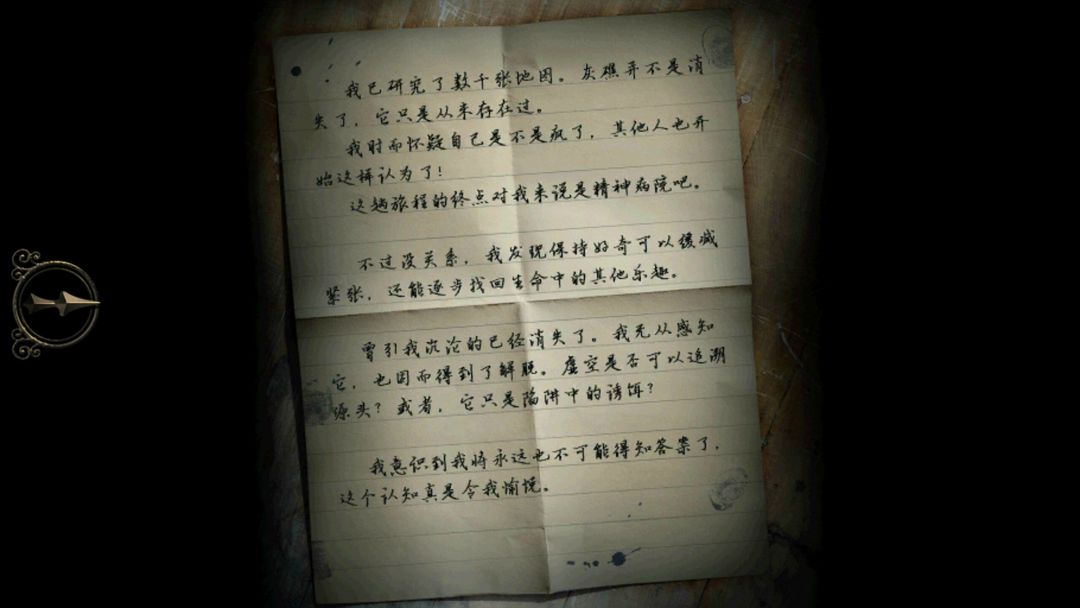 我已研究了数千张地图。灰礁并不是消
失了，它只是从未存在过。
我时而怀疑自己是不是疯了，其他人也开
始这样认为了！
这趟旅程的终点对我来说是精神病院吧。
不过没关系，我发现保持好奇可以缓减
紧张，还能逐步找回生命中的其他乐趣。
曾引我沉沦的已经消失了。我无从感知
它，也因而得到了解脱。虚空是否可以追溯
源头？或者，它只是陷阱中的诱饵？
我意识到我将永远也不可能得知答案了，
这个认知真是令我愉悦。